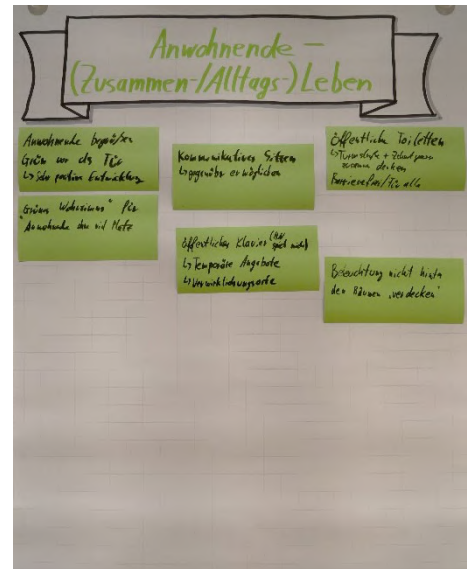 Anwohnende –
(Zusammen-/Alltags-)Leben
Anwohnende begrüßen
Grün vor der Tür
↳ Sehr positive Entwicklung
Grünes Wohnzimmer" für
"Anwohnende
Kommunikatives Sitzen
↳ gegenüber ermöglichen
öffentliches Klavier
↳ Temporäre Angebote
↳ Verwirklichungsorte
Öffentliche Toiletten
↳ Turmstraße +
zusammen denken
Barrierefrei/Für alle
Beleuchtung nicht hinter
den Bäumen „verdecken"